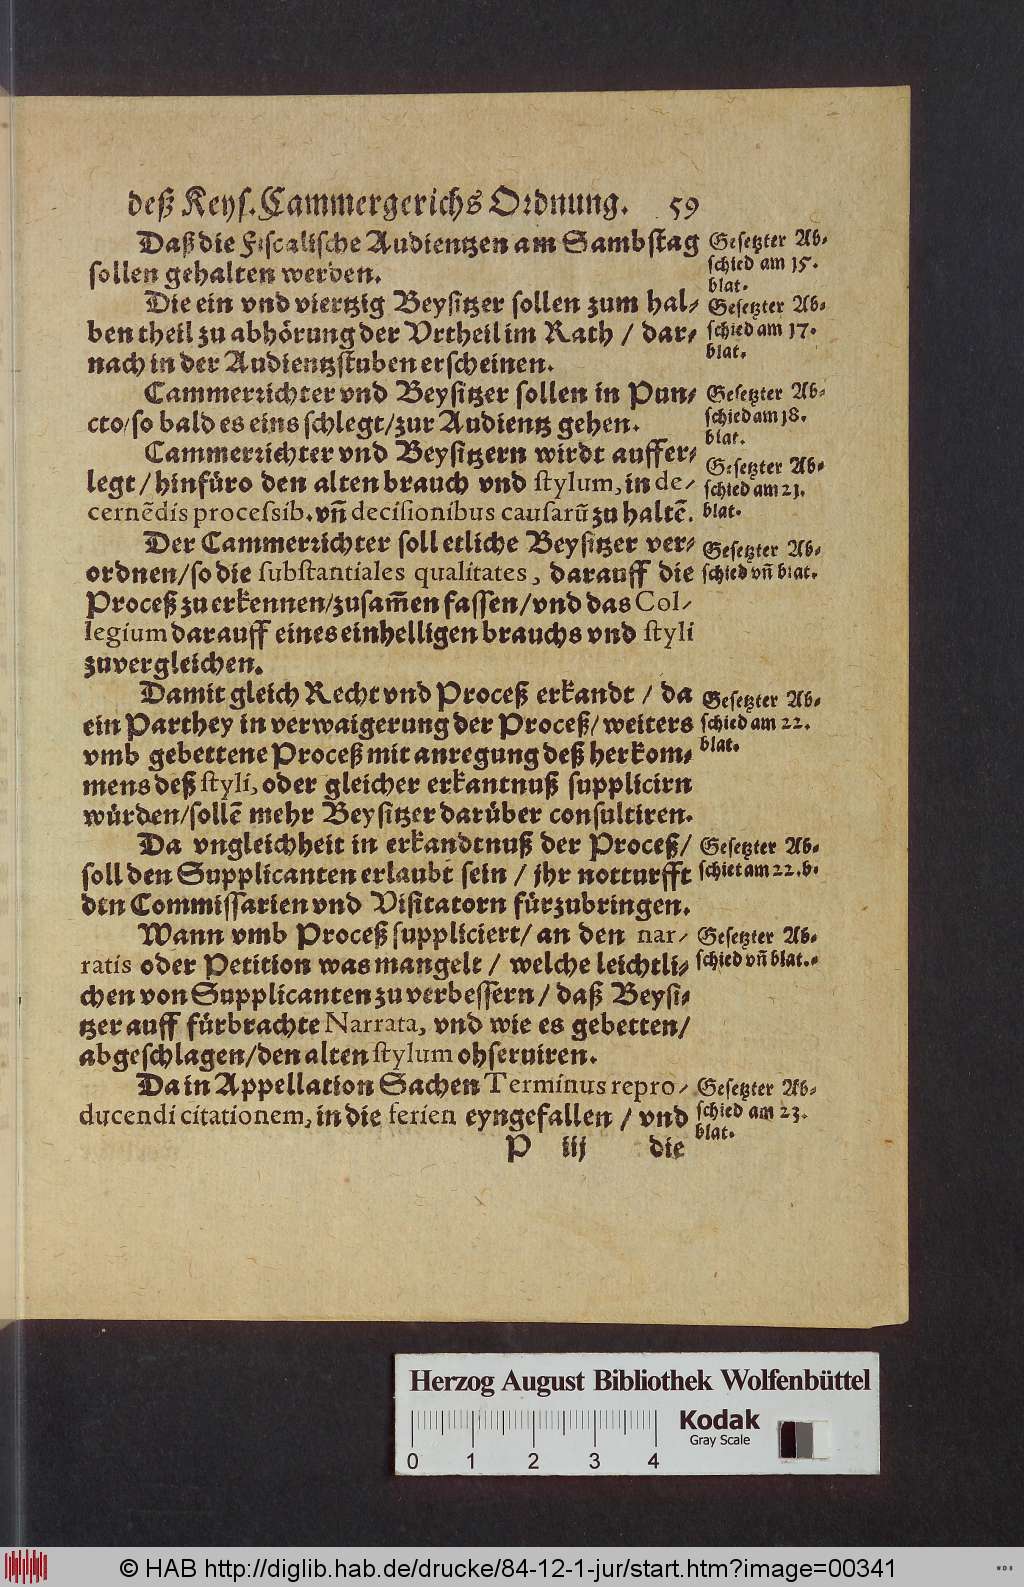 deß Keys. Cammergerichs Ordnung. 59
Daß die Fiscalische Audientzen am Sambstag
sollen gehalten werden.
Gesetzter Ab-
schied am 15.
blat.
Die ein vnd viertzig Beysitzer sollen zum hal-
ben theil zu abhörung der Vrtheil im Rath / dar-
nach in der Audientzstuben erscheinen.
Gesetzter Ab-
schied am 17.
blat.
Cammerrichter vnd Beysitzer sollen in Pun-
cto/so bald es eins schlegt/zur Audientz gehen.
Gesetzter Ab-
schied am 18.
blat.
Cammerrichter vnd Beysitzern wirdt auffer-
legt / hinfüro den alten brauch vnd stylum, in de-
cernēdis processib. vñ decisionibus causarū zu haltē.
Gesetzter Ab-
schied am 21.
blat.
Der Cammerrichter soll etliche Beysitzer ver-
ordnen/so die substantiales qualitates, darauff die
Proceß zu erkennen/zusam̃en fassen/vnd das Col-
legium darauff eines einhelligen brauchs vnd styli
zuvergleichen.
Gesetzter Ab-
schied vñ blat.
Damit gleich Recht vnd Proceß erkandt / da
ein Parthey in verwaigerung der Proceß/ weiters
vmb gebettene Proceß mit anregung deß herkom-
mens deß styli, oder gleicher erkantnuß supplicirn
würden/sollē mehr Beysitzer darüber consultiren.
Gesetzter Ab-
schied am 22.
blat.
Da vngleichheit in erkandtnuß der Proceß/
soll den Supplicanten erlaubt sein / jhr notturfft
den Commissarien vnd Visitatorn fürzubringen.
Gesetzter Ab-
schiet am 22. b.
Wann vmb Proceß suppliciert/ an den nar-
ratis oder Petition was mangelt / welche leichtli-
chen von Supplicanten zu verbessern / daß Beysi-
tzer auff fürbrachte Narrata, vnd wie es gebetten/
abgeschlagen/den alten stylum obseruiren.
Gesetzter Ab-
schied vñ blat.
Da in Appellation Sachen Terminus repro-
ducendi citationem, in die ferien eyngefallen / vnd
Gesetzter Ab-
schied am 23.
blat.
P iij die
Herzog August Bibliothek Wolfenbüttel
Kodak
Gray Scale
0 1 2 3 4
© HAB http://diglib.hab.de/drucke/84-12-1-jur/start.htm?image=00341